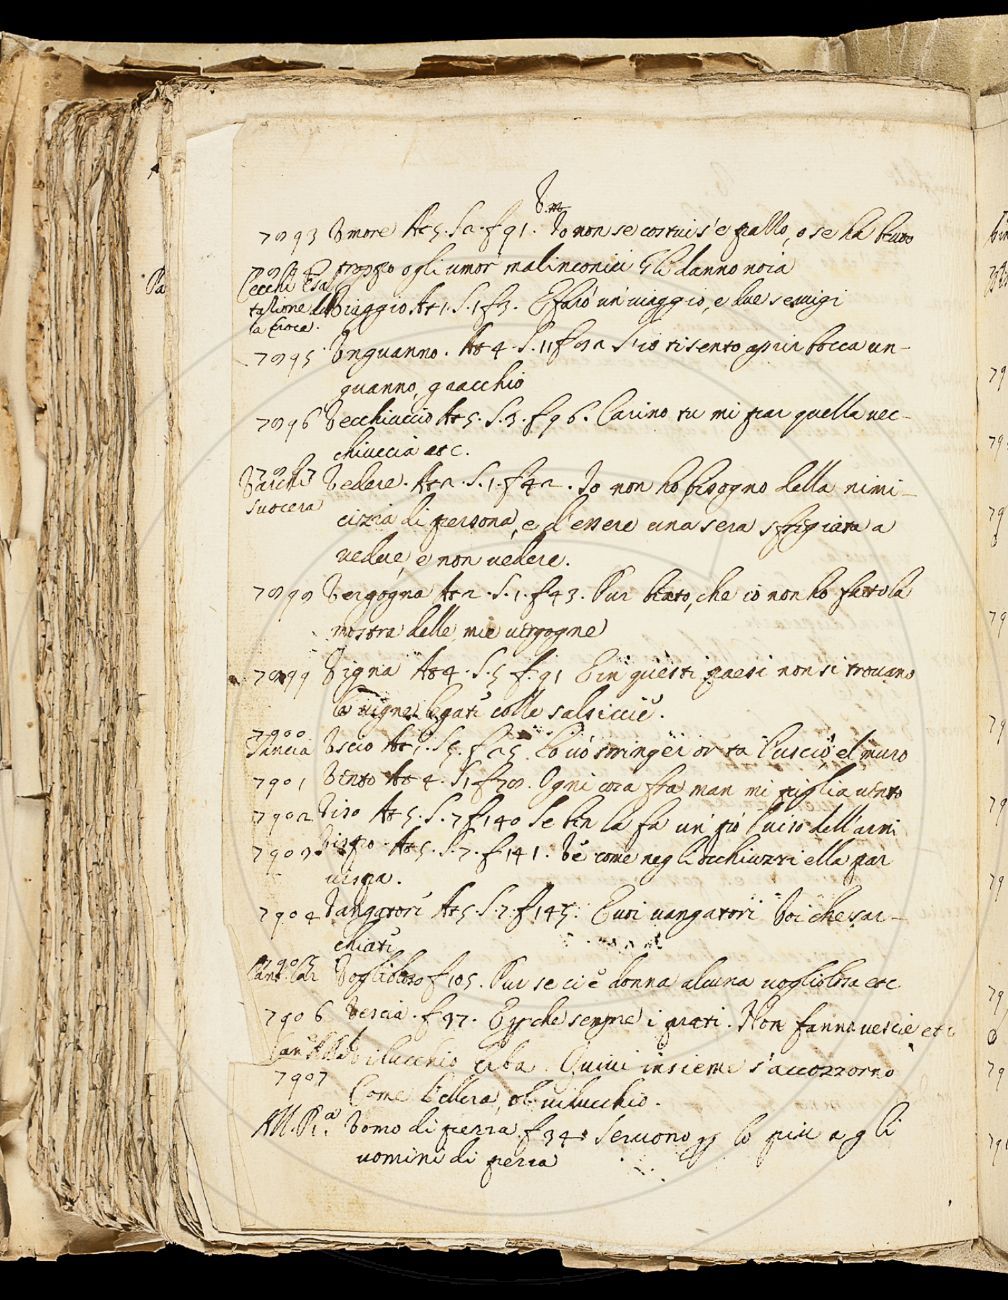 V.
7893 Umore At 5. S 2. f 91. Io non se costui s'è giallo, o se ha beuto
troppo o gli umor malinconici Gli danno noia
7894 Cecchi Esal
tazione del Viaggio At 1. S. 1 f 3. E farò un viaggio, e due servigi
la Croce.
7895 Unguanno. At 4. S. 11 f S'io ti sento aprir bocca un-
guanno, gracchio
7896 Vecchiuccio At 5. S. 3. f 96. Carino tu mi par quella vec-
chiuccia etc.
7897
Varchi Vedere. At 2. S. 1. f 42. Io non ho bisogno della nimi-
Suocera
cizia di persona, e d'essere una sera sfregiata a
vedere, e non vedere.
7898 Vergogna At 2. S. 1. f 43. Pur beato, che io non ho fatto la
mostra delle mie vergogne
7899 Vigna At 4. S. 5 f. 91 E in questi paesi non si trovano
le vigne legate colle salsiccie.
7900
Tancia Uscio At 5. S. 5. f 25. Lo vo' stringer or tra l'uscio, e'l muro
7901 Vento At 4. S. 1 f 78. Ogni cosa fra man mi piglia vento
7902 Viso At 5. S. 7 f 140 Se ben la fa un po' l'viso dell'armi
7903 Vispo. At 5. S. 7. f 141. Ve come negli occhiuzzi ella par
vispa.
7904 Vangatori At 5 S. 7. f 145. Curi vangatori Voi che sar-
chiate
7905
Cant. Car Voglioloso f 105. Pur se ci è donna alcuna vogliolosa etc
7906 Vescia. f 97. E perche sempre i prati. Non fanno vescie etc
Vilucchio erba. Quivi insieme s'accozzorno
7907
Come l'ellera, e'l vilucchio.
All. Pa. Uomo di pezza f 340 Servono per lo più a gli
uomini di pezza